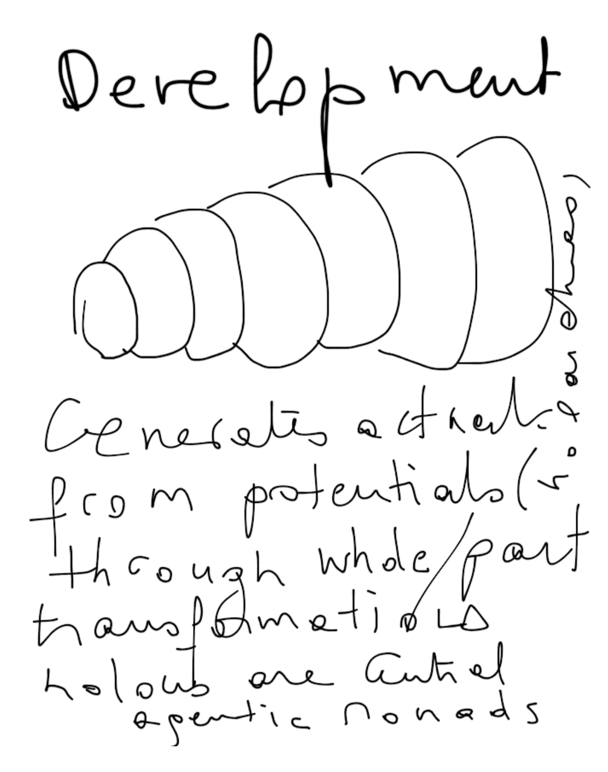 Development
Generates actual
from potentials (
through whole/part
transformations
holons are central
agentic monads